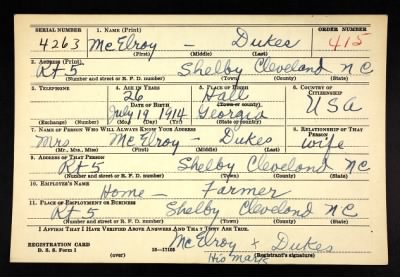 SERIAL NUMBER 1. NAME (Print) ORDER NUMBER
4263 McElroy — Dukes 415
(First) (Middle) (Last)
2. ADDRESS (Print)
Rt 5 Shelby Cleveland N C
(Number and street or R. F. D. number) (Town) (County) (State)
3. TELEPHONE 4. AGE IN YEARS 5. PLACE OF BIRTH 6. COUNTRY OF CITIZENSHIP
26 Hall
DATE OF BIRTH (Town or county)
July 19 1914 Georgia USA
(Exchange) (Number) (Mo.) (Day) (Yr.) (State or country)
7. NAME OF PERSON WHO WILL ALWAYS KNOW YOUR ADDRESS 8. RELATIONSHIP OF THAT PERSON
Mrs McElroy — Dukes wife
(Mr., Mrs., Miss) (First) (Middle) (Last)
9. ADDRESS OF THAT PERSON
Rt 5 Shelby Cleveland N C
(Number and street or R. F. D. number) (Town) (County) (State)
10. EMPLOYER'S NAME
Home — Farmer
11. PLACE OF EMPLOYMENT OR BUSINESS
Rt 5 Shelby Cleveland N C
(Number and street or R. F. D. number) (Town) (County) (State)
I AFFIRM THAT I HAVE VERIFIED ABOVE ANSWERS AND THAT THEY ARE TRUE.
REGISTRATION CARD
D. S. S. Form 1 16—17105 McElroy x Dukes
(over) His mark (Registrant's signature)